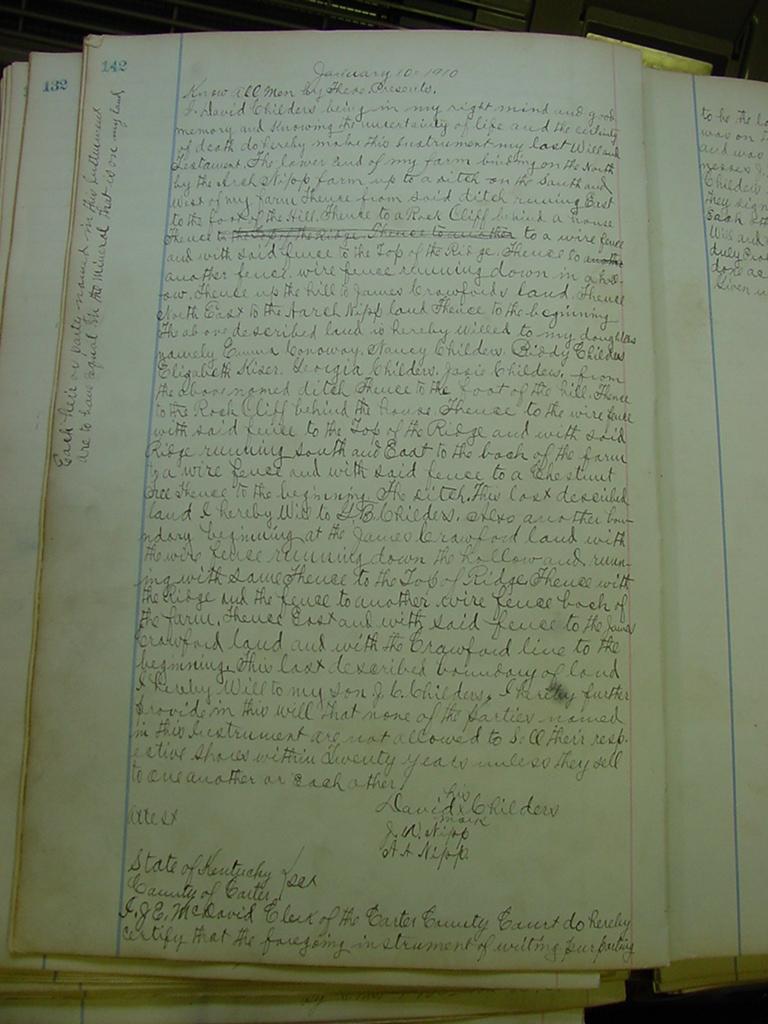 132
142
January 10. 1910
Know all men by these Presents,
I, David Childers being in my right mind and good
memory and knowing the uncertainty of life and the certainty
of death do hereby make this Instrument my last Will and
Testament. The lower end of my farm binding on the North
by the Arch Nipp farm up to a ditch on the South and
West of my farm Thence from said ditch running East
to the foot of the Hill. Thence to a Rock Cliff behind a house
Thence to the Top of the Ridge. Thence to another to a wire fence
and with said fence to the Top of the Ridge. Thence to another
another fence, wire fence running down in a hol-
low. Thence up the hill to James Crawfords land. Thence
North East to the Aarch Nipp land Thence to the beginning
The above described land is hereby Willed to my daughters
namely Emma Conoway. Nancy Childers. Biddy Childers
Elizabeth Kiser. Georgia Childers. Josie Childers. from
the above named ditch Thence to the foot of the hill. Thence
to the Rock Cliff behind the house. Thence to the wire fence
with said fence to the Top of the Ridge and with said
Ridge running South and East to the back of the farm
to a wire fence and with said fence to a Chestnut
tree Thence to the beginning. The ditch. This last described
land I hereby Will to Childers. Also another bou-
ndary beginning at the James Crawford land with
the wire fence running down the hollow and runn-
ing with same Thence to the Top of Ridge Thence with
the Ridge and the fence to another wire fence back of
the farm. Thence East and with said fence to the James
Crawford land and with the Crawford line to the
beginning. This last described boundary of land
I hereby Will to my son J. C. Childers. I hereby further
provide in this will that none of the parties named
in this Instrument are not allowed to Sell their resp-
ective shares within Twenty years unless they sell
to one another or Each other.
his
David x Childers
mark
Attest
J. W. Nipp
A. A. Nipp.
State of Kentucky } sct
County of Carter.
I, J. E. McDavid Clerk of the Carter County Court do hereby
certify that the foregoing instrument of writing purporting
Each heir or party named in this Instrument
are to have equal in the mineral that is on my land
to be the la
was on
and was
nesses
Childers
they sign
Each oth
Will and
duly Pro
done as
Given u